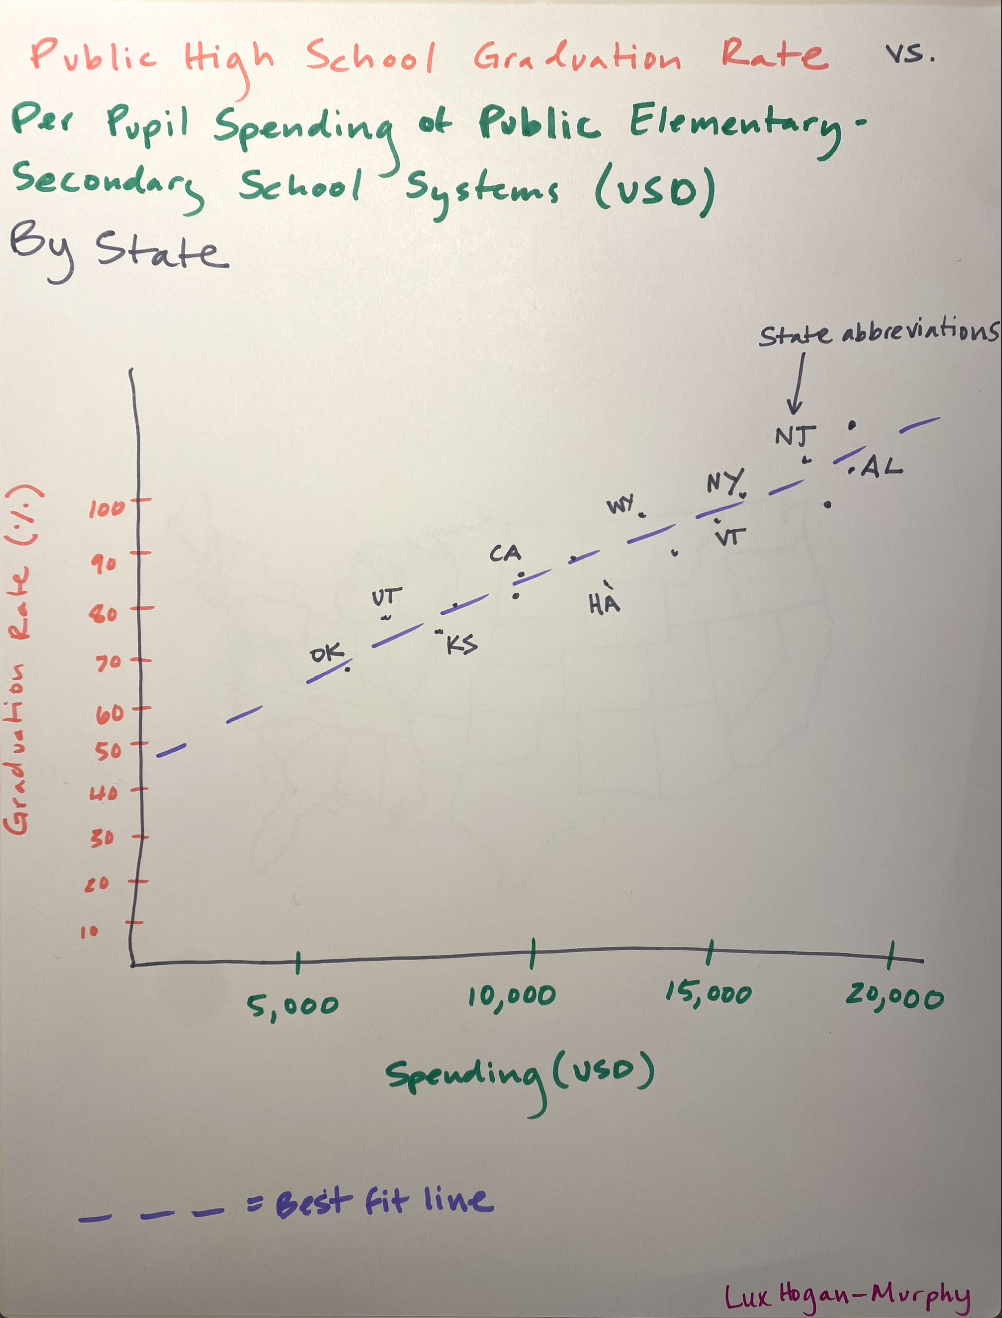 Public High School Graduation Rate vs.
Per Pupil Spending of Public Elementary-
Secondary School Systems (USD)
By State
State abbreviations
NJ
AL
NY
WY
VT
CA
HA
UT
KS
OK
Graduation Rate (%)
100
90
80
70
60
50
40
30
20
10
5,000 10,000 15,000 20,000
Spending (USD)
= Best fit line
Lux Hogan-Murphy